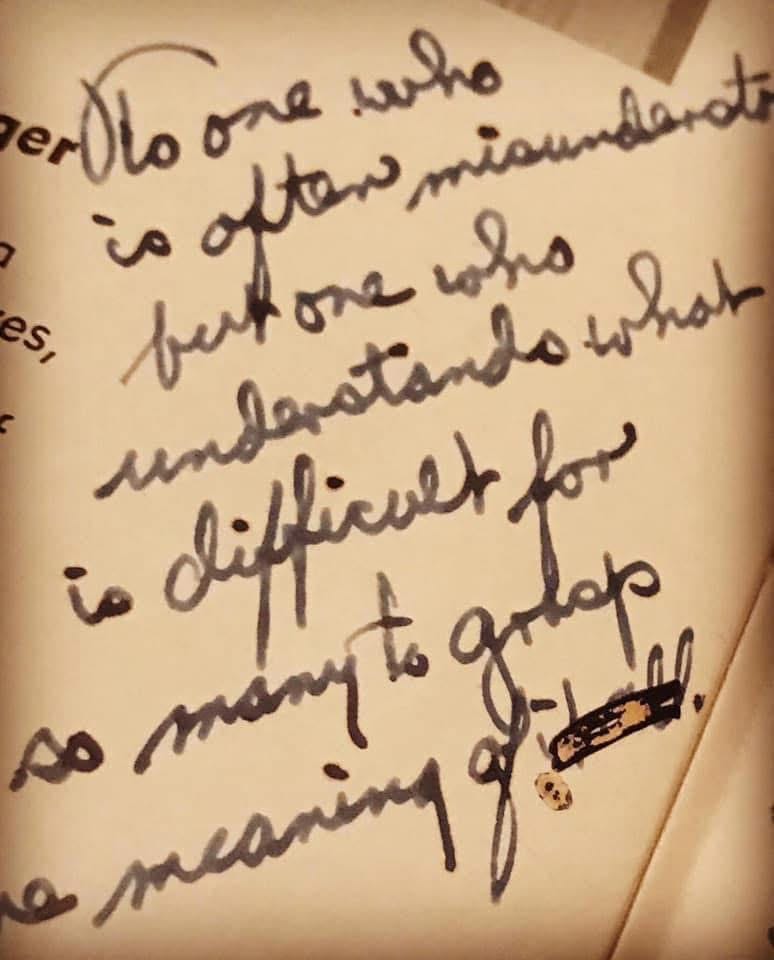 ger To one who
is often misunderst
but one who
es,
understands what
is difficult for
so many to grasp
he meaning of it all.